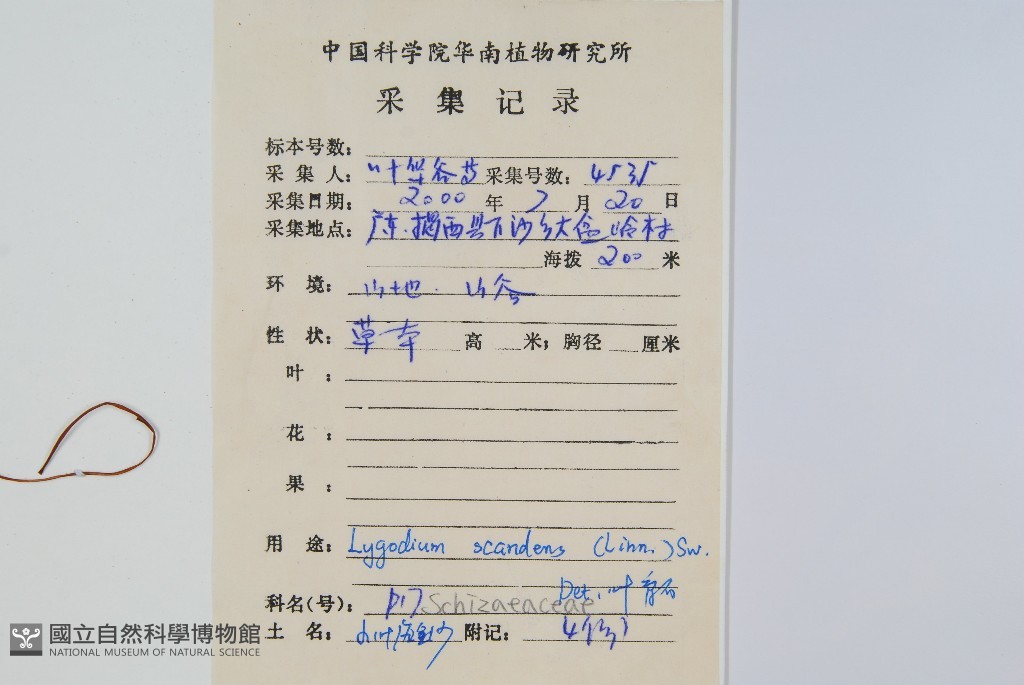 中国科学院华南植物研究所
采集记录
标本号数：
采集人：叶华谷 采集号数：4535
采集日期：2000 年 7 月 20 日
采集地点：广东.揭西县下沙乡大 岭村
海拨 200 米
环境：山地. 山谷
性状：草本 高 米；胸径 厘米
叶：
花：
果：
用途：Lygodium scandens (Linn.) Sw.
Det. 叶育石
科名(号)：P17 Schizaeaceae
土名：小叶海金沙 附记：
國立自然科學博物館
NATIONAL MUSEUM OF NATURAL SCIENCE